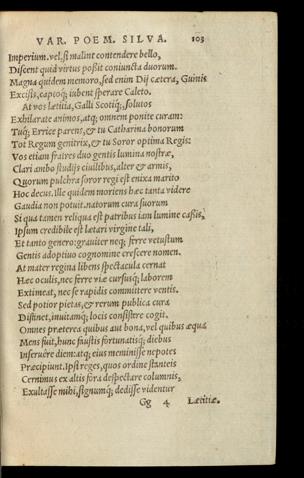 VAR. POEM. SILVA. 103
Imperium. vel, si malint contendere bello,
Discent quid virtus poßit coniuncta duorum.
Magna quidem memoro, sed enim Dij cætera, Guinis
Excisis, captoq; iubent sperare Caleto.
At vos lætitia, Galli Scotiq;, solutos
Exhilarate animos, atq; omnem ponite curam:
Tuq; Errice parens, & tu Catharina bonorum
Tot Regum genitrix, & tu Soror optima Regis:
Vos etiam fratres duo gentis lumina nostræ,
Clari ambo studijs ciuilibus, alter & armis,
Quorum pulchra soror regi est enixa marito
Hoc decus. ille quidem moriens hæc tanta videre
Gaudia non potuit. natorum cura suorum
Si qua tamen reliqua est patribus iam lumine caßis,
Ipsum credibile est lætari virgine tali,
Et tanto genero: grauiter neq; ferre vetustum
Gentis adoptiuo cognomine crescere nomen.
At mater regina libens spectacula cernat
Hæc oculis, nec ferre viæ cursusq; laborem
Extimeat, nec se rapidis committere ventis.
Sed potior pietas, & rerum publica cura
Distinet, inuitamq; locis consistere cogit.
Omnes præterea quibus aut bona, vel quibus æqua
Mens fuit, hunc faustis fortunatisq; diebus
Inseruêre diem: atq; eius meminisse nepotes
Præcipiunt. Ipsi reges, quos ordine stanteis
Cernimus ex altis fora despectare columnis,
Exultasse mihi, signumq; dedisse videntur
Gg 4 Lætitiæ.